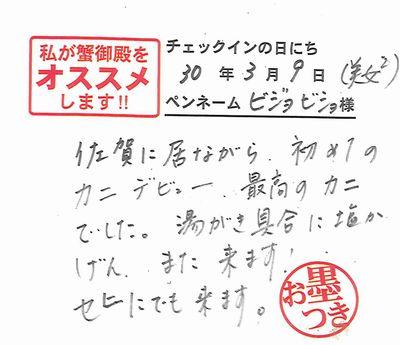 私が蟹御殿を
オススメ
します!!
チェックインの日にち
30年3月9日 (美女²)
ペンネーム ビジョビジョ様
佐賀に居ながら、初めての
カニデビュー、最高のカニ
でした。湯がき具合に塩か
げん、また来ます!
ゼヒにでも来ます。
お墨つき